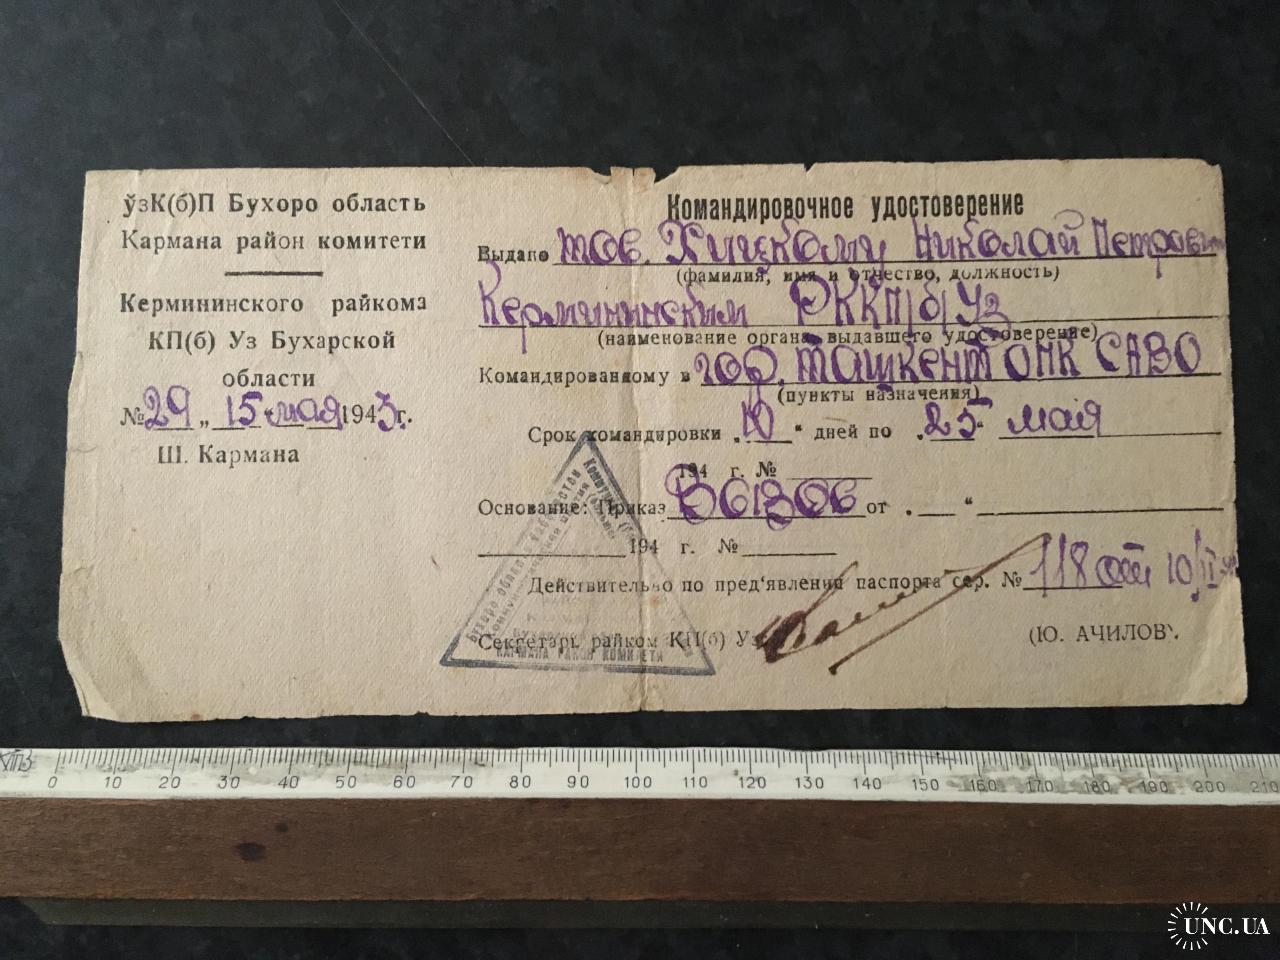 ўзК(б)П Бухоро область
Кармана район комитети
Кермининского райкома
КП(б) Уз Бухарской
области
№ 29 „ 15 " мая 1943 г.
Ш. Кармана
Командировочное удостоверение
Выдано тов. Хицкому Николай Петрович
(фамилия, имя и отчество, должность)
Кермининским РККП/б/Уз
(наименование органа, выдавшего удостоверение)
Командированному в гор. Ташкент ОНК САВО
(пункты назначения)
Срок командировки „ 10 " дней по „ 25 мая
194 г. №
Основание: Приказ Вызов от „ "
194 г. №
Действительно по пред'явлении паспорта сер. № 118 от 10/VI
Секретарь райком КП(б) Уз (Ю. АЧИЛОВ).
Бухоро область Узбекистон
Коммунистическая партия
КАРМАНА РАЙОН КОМИТЕТИ
0 10 20 30 40 50 60 70 80 90 100 110 120 130 140 150 160 170 180 190 200 210
UNC.UA